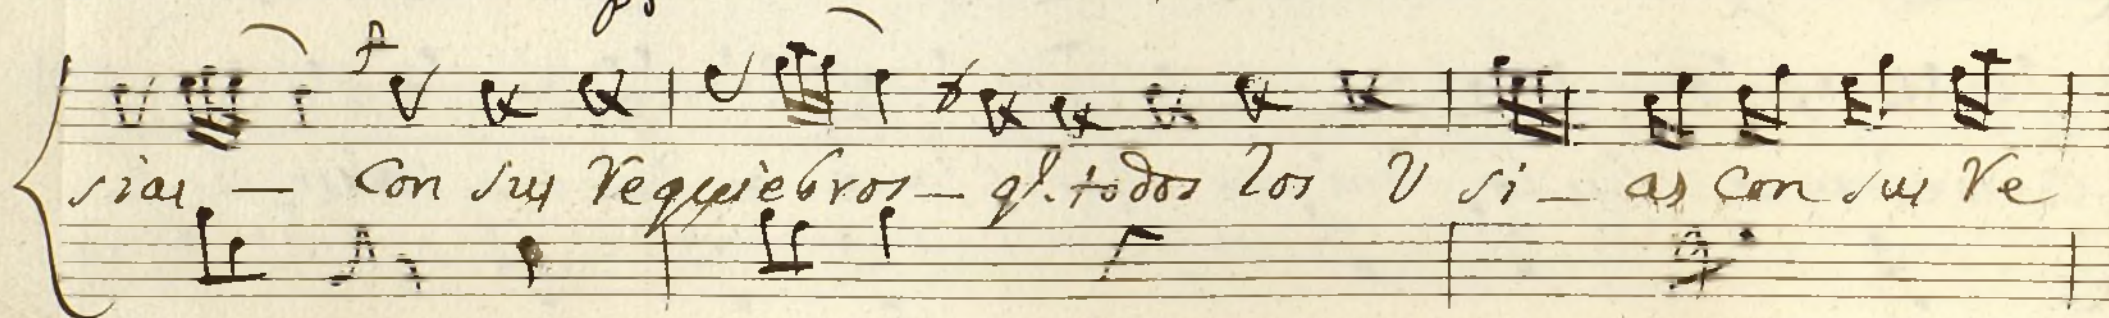 sias — Con sus Requiebros — q.e todos los V si — as con sus Re